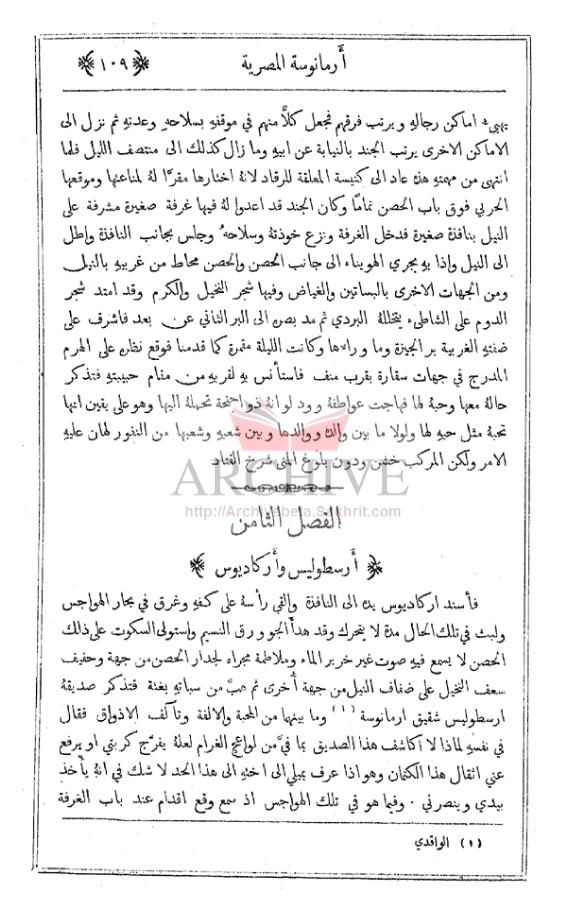 أرمانوسة المصرية ﴿ ١٠٩ ﴾
يهيىء اماكن رجاله ويرتب فرقهم فجعل كلاًّ منهم في موقفه بسلاحه وعدته ثم نزل الى
الاماكن الاخرى يرتب الجند بالنيابة عن ابيه وما زال كذلك الى منتصف الليل فلما
انتهى من مهمته هذه عاد الى كنيسة المعلقة للرقاد لانه اختارها مقرًّا له لمناعتها وموقعها
الحربي فوق باب الحصن تمامًا وكان الجند قد اعدوا له فيها غرفة صغيرة مشرفة على
النيل بنافذة صغيرة فدخل الغرفة ونزع خوذته وسلاحه وجلس بجانب النافذة واطل
الى النيل واذا به يجري الهويناء الى جانب الحصن والحصن محاط من غربيه بالنيل
ومن الجهات الاخرى بالبساتين والغياض وفيها شجر النخيل والكرم وقد امتد شجر
الدوم على الشاطىء يتخلله البردي ثم مد بصره الى البر الثاني عن بعد فاشرف على
ضفته الغربية بر الجيزة وما وراءها وكانت الليلة مقمرة كما قدمنا فوقع نظره على الهرم
المدرج في جهات سقارة بقرب منف فاستأنس به لقربه من مقام حبيبته فتذكر
حاله معها وحبه لها فهاجت عواطفه وود لو انه ذو اجنحة تحمله اليها وهو على يقين انها
تحبه مثل حبه لها ولولا ما بين والده ووالدها وبين شعبه وشعبها من النفور لهان عليه
الامر ولكن المركب خشن ودون بلوغ المنى شرخ القتاد
ARCHIVE
http://Archivebeta.Sakhrit.com
الفصل الثامن
﴿ أرسطوليس وأركاديوس ﴾
فأسند اركاديوس يده الى النافذة والقى رأسه على كفه وغرق في بحار الهواجس
ولبث في تلك الحال مدة لا يتحرك وقد هدأ الجو ورق النسيم واستولى السكوت على ذلك
الحصن لا يسمع فيه صوت غير خرير الماء وملاطمة مجراه لجدار الحصن من جهة وحفيف
سعف النخيل على ضفاف النيل من جهة أخرى ثم هبَّ من سباته بغتة فتذكر صديقه
ارسطوليس شقيق ارمانوسة (١) وما بينهما من المحبة والالفة وتآلف الاذواق فقال
في نفسه لماذا لا اكاشف هذا الصديق بما فيَّ من لواعج الغرام لعله يفرّج كربتي او يرفع
عني اثقال هذا الكتمان وهو اذا عرف بميلي الى اخته الى هذا الحد لا شك في انه يأخذ
بيدي وينصرني . وفيما هو في تلك الهواجس اذ سمع وقع اقدام عند باب الغرفة
(١) الواقدي